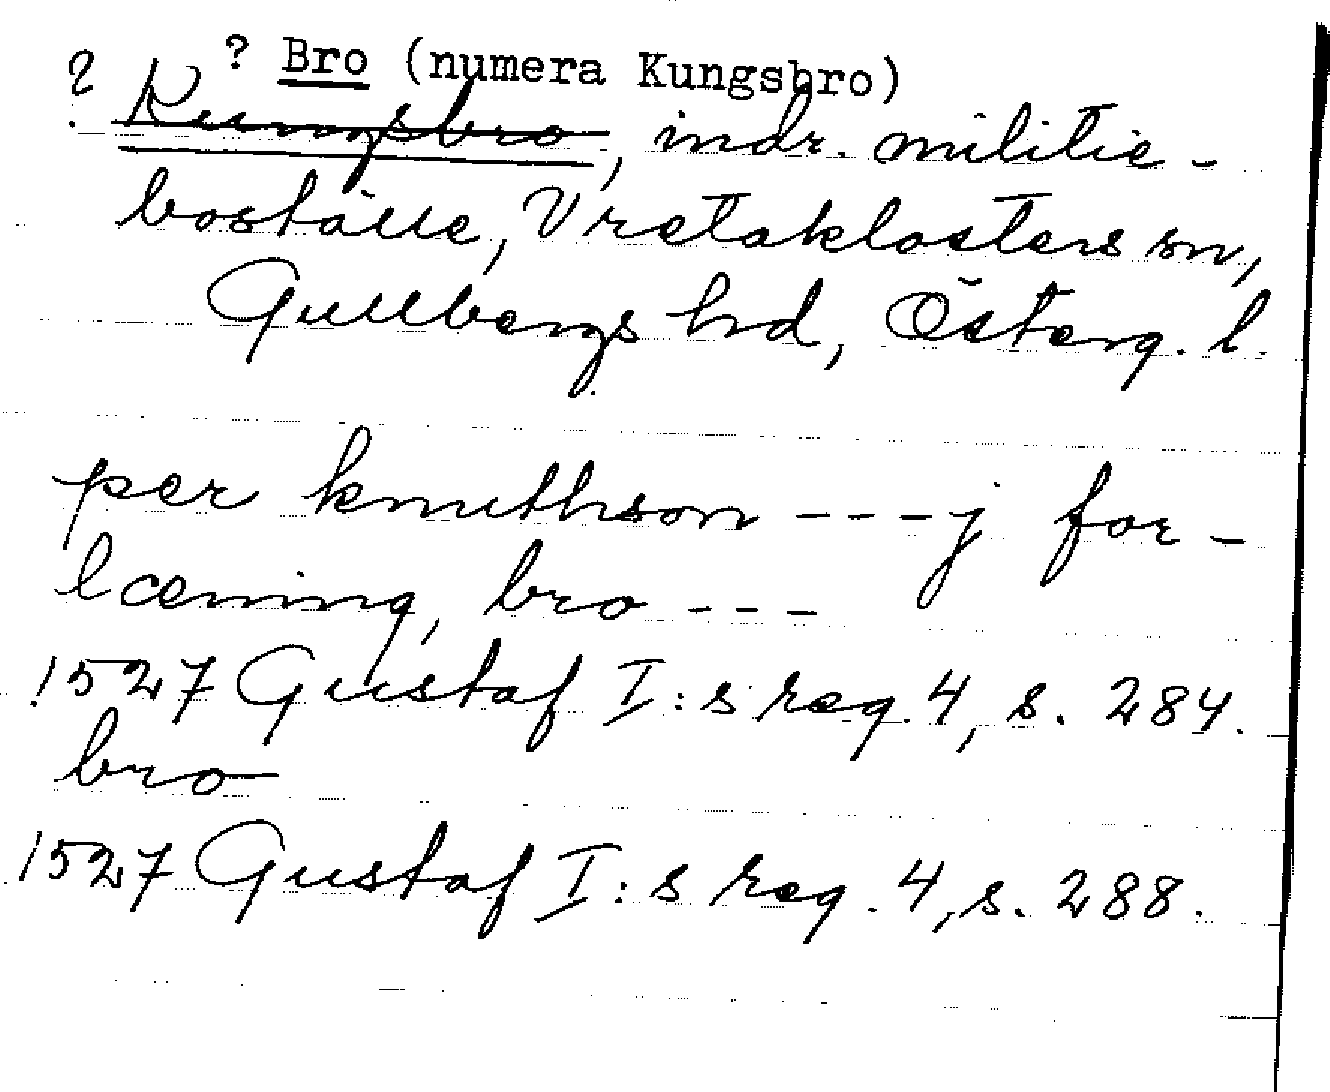 ? Bro (numera Kungsbro)
? Kungsbro, indr. militie-
boställe, Vretaklosters sn,
Gullbergs hd, Österg. l.
per knuthson ---j for-
læning, bro ---
1527 Gustaf I:s reg. 4, s. 284.
bro
1527 Gustaf I:s reg. 4, s. 288.